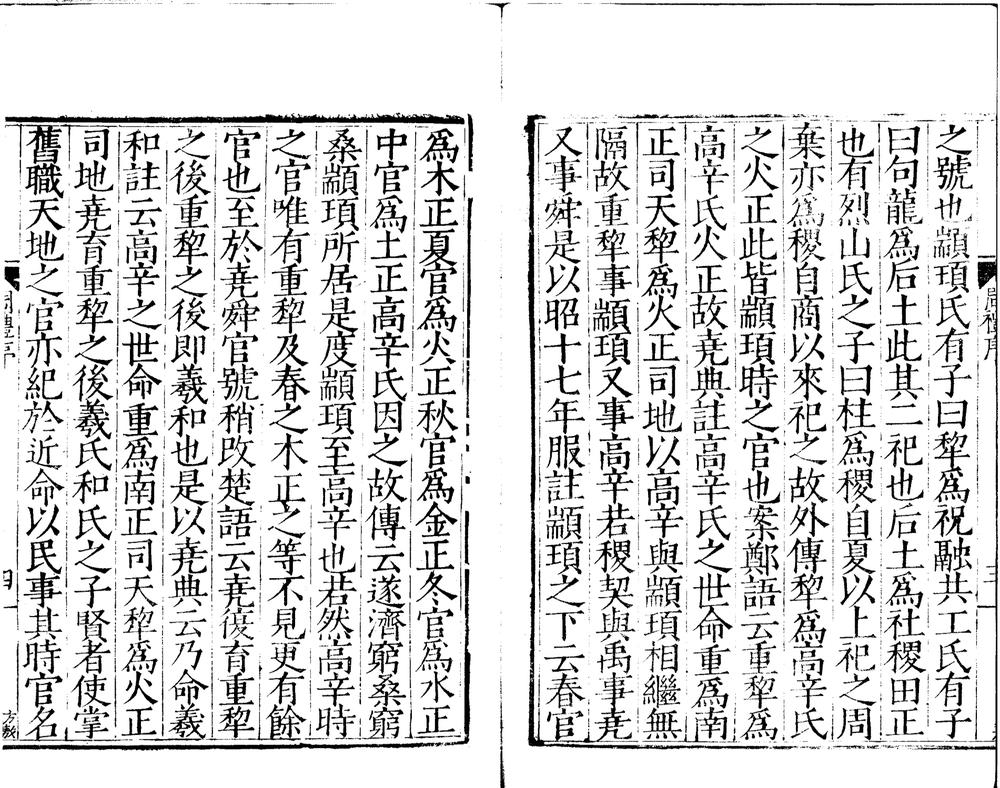 之號也顓頊氏有子曰犂爲祝融共工氏有子
曰句龍爲后土此其二祀也后土爲社稷田正
也有烈山氏之子曰柱爲稷自夏以上祀之周
棄亦爲稷自商以來祀之故外傳犂爲高辛氏
之火正此皆顓頊時之官也案鄭語云重犂爲
高辛氏火正故堯典註高辛氏之世命重爲南
正司天犂爲火正司地以高辛與顓頊相繼無
隔故重犂事顓頊又事高辛若稷契與禹事堯
又事舜是以昭十七年服註顓頊之下云春官
爲木正夏官爲火正秋官爲金正冬官爲水正
中官爲土正高辛氏因之故傳云遂濟窮桑窮
桑顓頊所居是度顓頊至高辛也若然高辛時
之官唯有重犂及春之木正之等不見更有餘
官也至於堯舜官號稍改楚語云堯復育重犂
之後重犂之後即羲和也是以堯典云乃命羲
和註云高辛之世命重爲南正司天犂爲火正
司地堯育重犂之後羲氏和氏之子賢者使掌
舊職天地之官亦紀於近命以民事其時官名
周禮序
三
周禮序
四